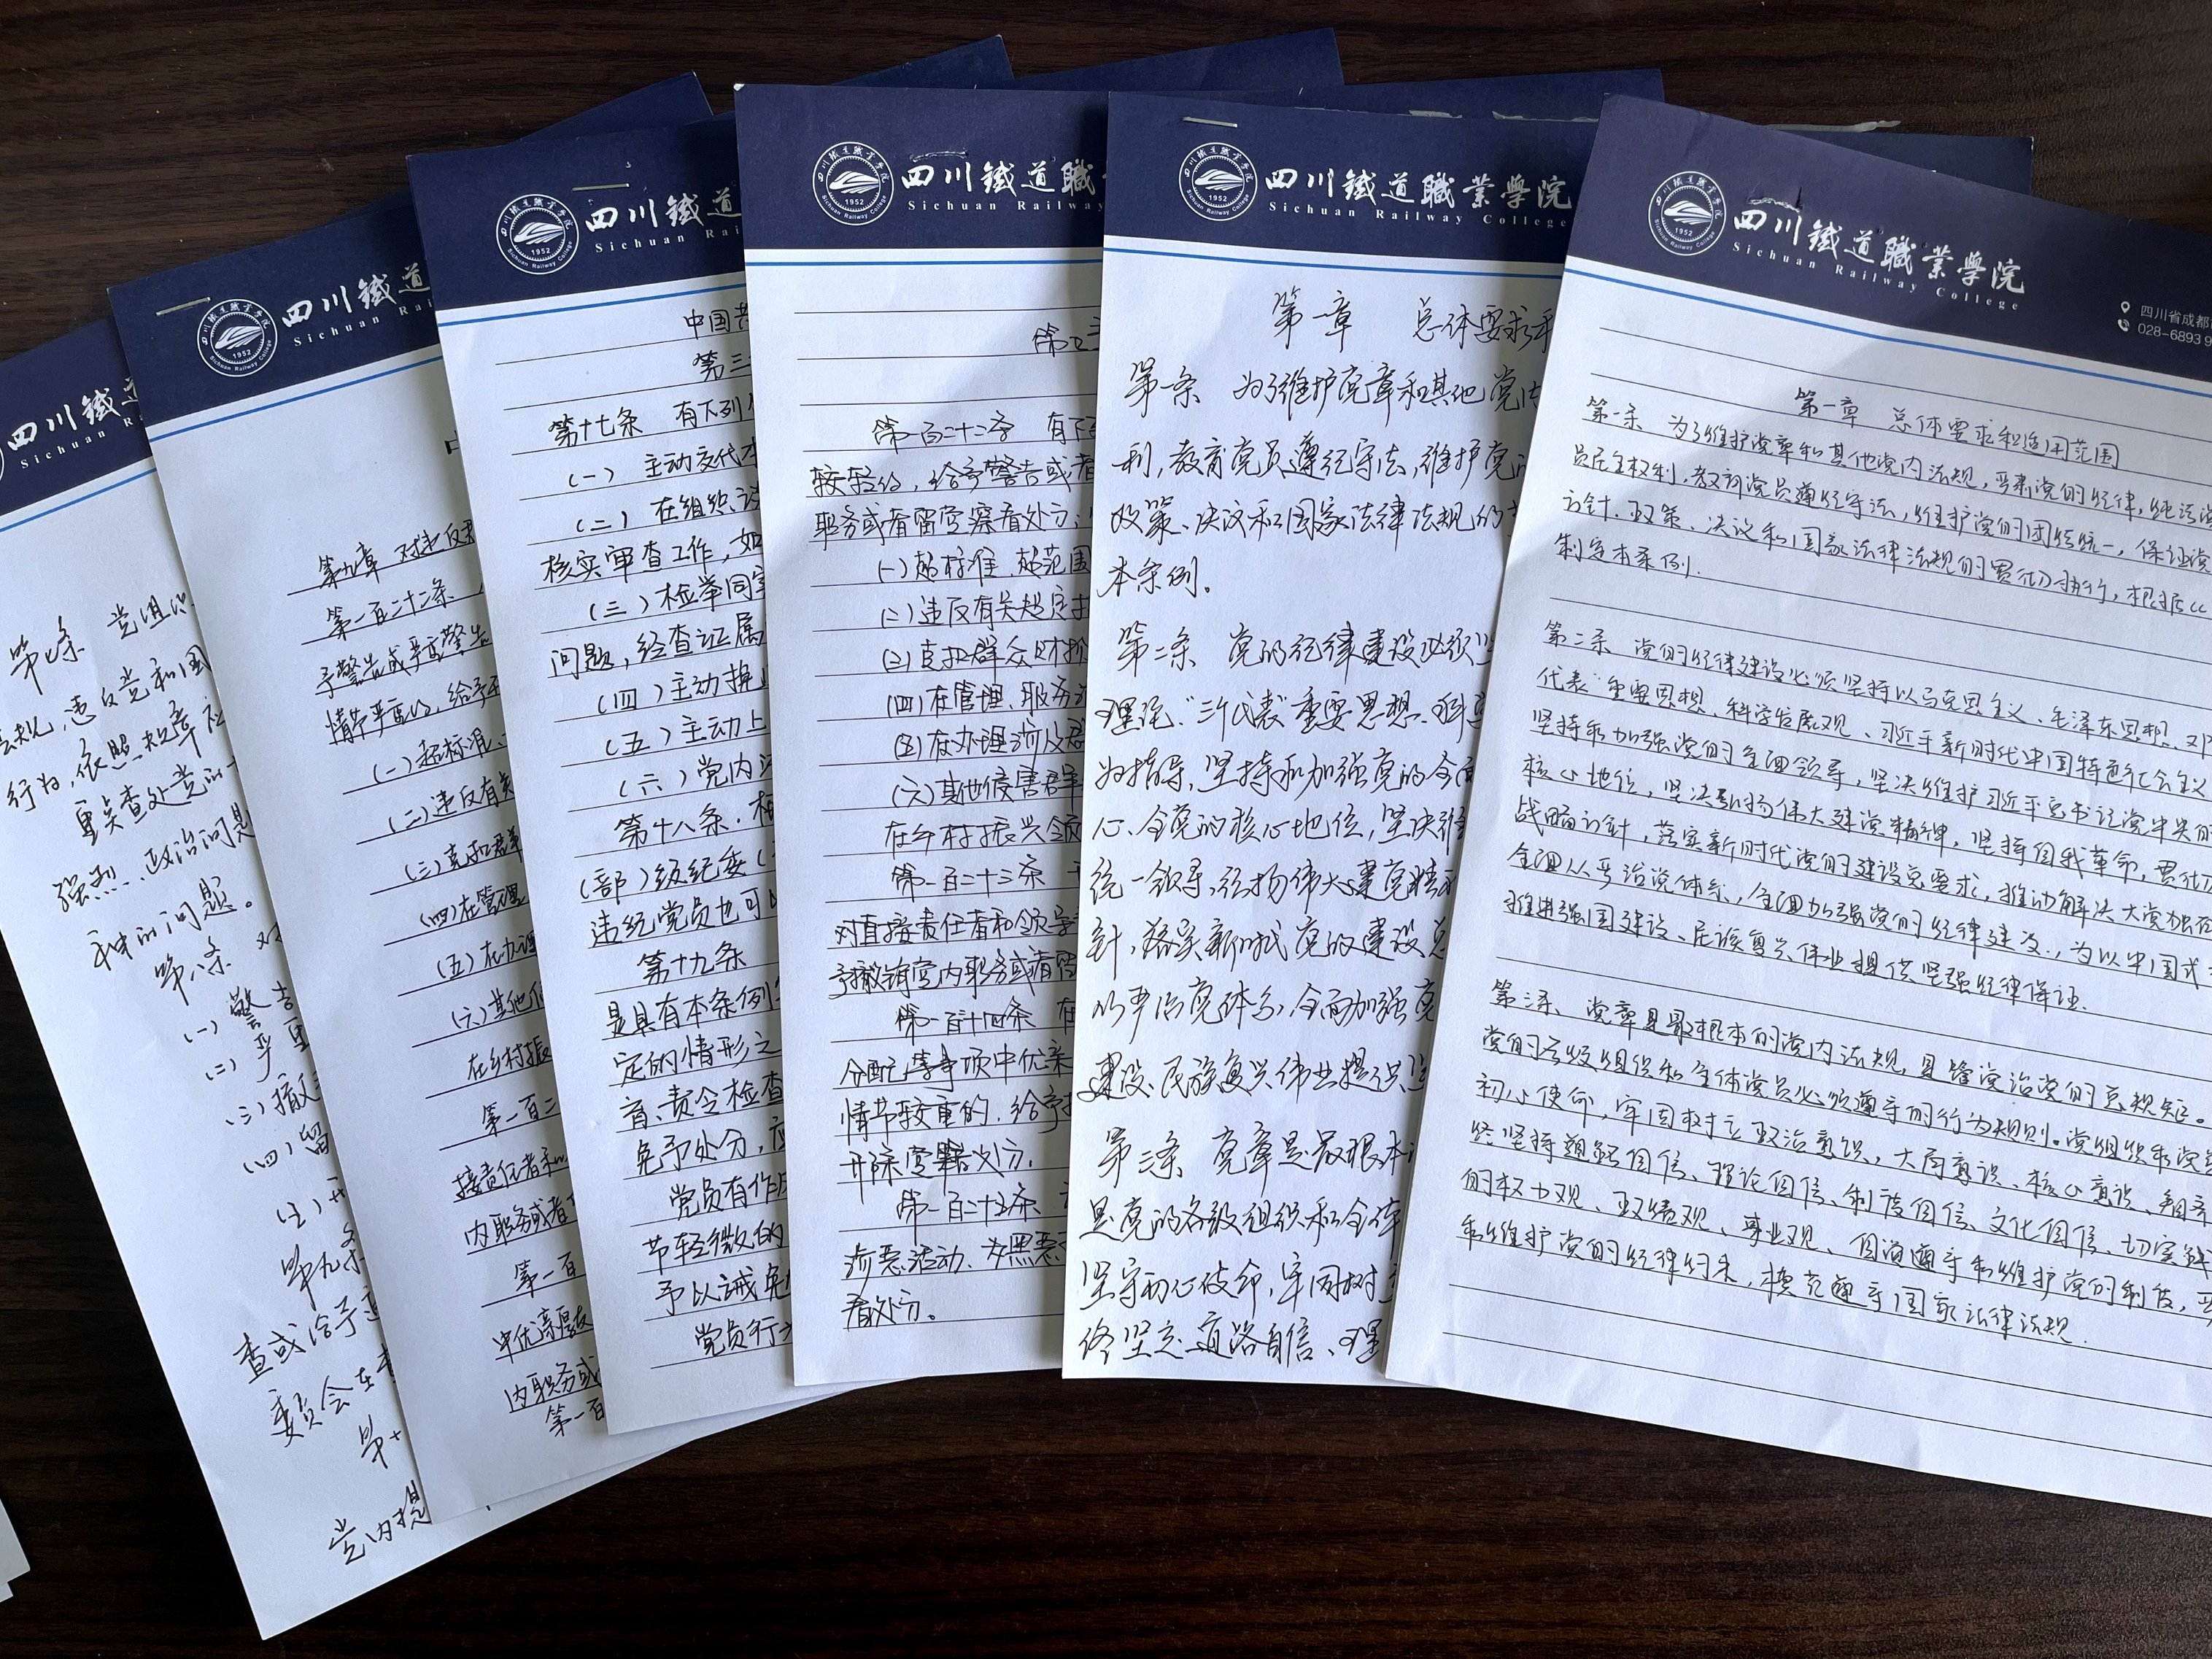 四川鐵道
Sichuan R
第七条 党组
法规,违反党和国
行为,依照规章
重点查处党的
强烈、政治问题
和的问题。
第八条 对
(一)警告
(二)严重
(三)撤
(四)留
第九条
查或给予
委员会在
第十
党内
四川鐵道
Sichuan Rai
1952
Sichuan Railway College
第九章 对违反
第一百二十二条
予警告或严重警告
情节严重的,给予
(一)超标准、
(二)违反有关
(三)克扣群
(四)在管理
(五)在办理
(六)其他
在乡村振
第一百二
接责任者和
内职务或者
第一百
中优亲厚友
内职务或
第一百
四川鐵道
Sichuan Rai
1952
Sichuan Railway College
中国共
第三
第十七条 有下列
(一)主动交代本
(二)在组织
核实审查工作,如
(三)检举同
问题,经查证属
(四)主动挽
(五)主动上
(六)党内
第十八条.根
(部)级纪委(
违纪党员也可
第十九条
是具有本条例
定的情形之
育、责令检查
免予处分,应
党员有作
节轻微的
予以诫勉
党员行
四川鐵道職
Sichuan Railway
1952
Sichuan Railway College
第一百二十二条 有下
较轻的,给予警告或者
职务或者留党察看处分;
(一)超标准、超范围
(二)违反有关规定
群众财
(四)在管理、服务
在办理涉及群
(六)其他侵害群
在乡村振兴领
第一百二十三条
对直接责任者和领导
予撤销党内职务或者留
分配等事项中优亲
情节较重的,给予
开除党籍处分.
第一百二十五条
涉恶活动、为黑恶
看处分。
四川鐵道職業學院
Sichuan Railway College
1952
Sichuan Railway College
第一章 总体要求和
第一条 为了维护党章和其他党内
利,教育党员遵纪守法,维护党的
政策、决议和国家法律法规的
本条例。
第二条 党的纪律建设必须坚
理论、“三个代表”重要思想、科学
为指导,坚持和加强党的全面
心、全党的核心地位,坚决维
统一领导,弘扬伟大建党精神
针,落实新时代党的建设总
从严治党体系,全面加强党
建设、民族复兴伟业提供坚
第三条 党章是最根本
是党的各级组织和全体
坚守初心使命,牢固树立
终坚定道路自信、理
四川鐵道職業學院
Sichuan Railway College
1952
Sichuan Railway College
四川省成都
028-6893 9
第一章 总体要求和适用范围
第一条 为了维护党章和其他党内法规,严肃党的纪律,纯洁党
员民主权利,教育党员遵纪守法,维护党的团结统一,保证党
方针、政策、决议和国家法律法规的贯彻执行,根据《
制定本条例.
第二条 党的纪律建设必须坚持以马克思主义、毛泽东思想、邓
代表”重要思想、科学发展观、习近平新时代中国特色社会主义
坚持和加强党的全面领导,坚决维护习近平总书记党中央的
核心地位,坚决弘扬伟大建党精神,坚持自我革命,贯彻
战略方针,落实新时代党的建设总要求,推动解决大党独有
全面从严治党体系,全面加强党的纪律建设,为以中国式
推进强国建设、民族复兴伟业提供坚强纪律保证.
第三条 党章是最根本的党内法规,是管党治党的总规矩。
党的各级组织和全体党员必须遵守的行为规则。党组织和党员
初心使命,牢固树立政治意识、大局意识、核心意识、看齐
终坚持道路自信、理论自信、制度自信、文化自信,切实践
的权力观、政绩观、事业观、自觉遵守和维护党的制度,严
和维护党的纪律约束,模范遵守国家法律法规.